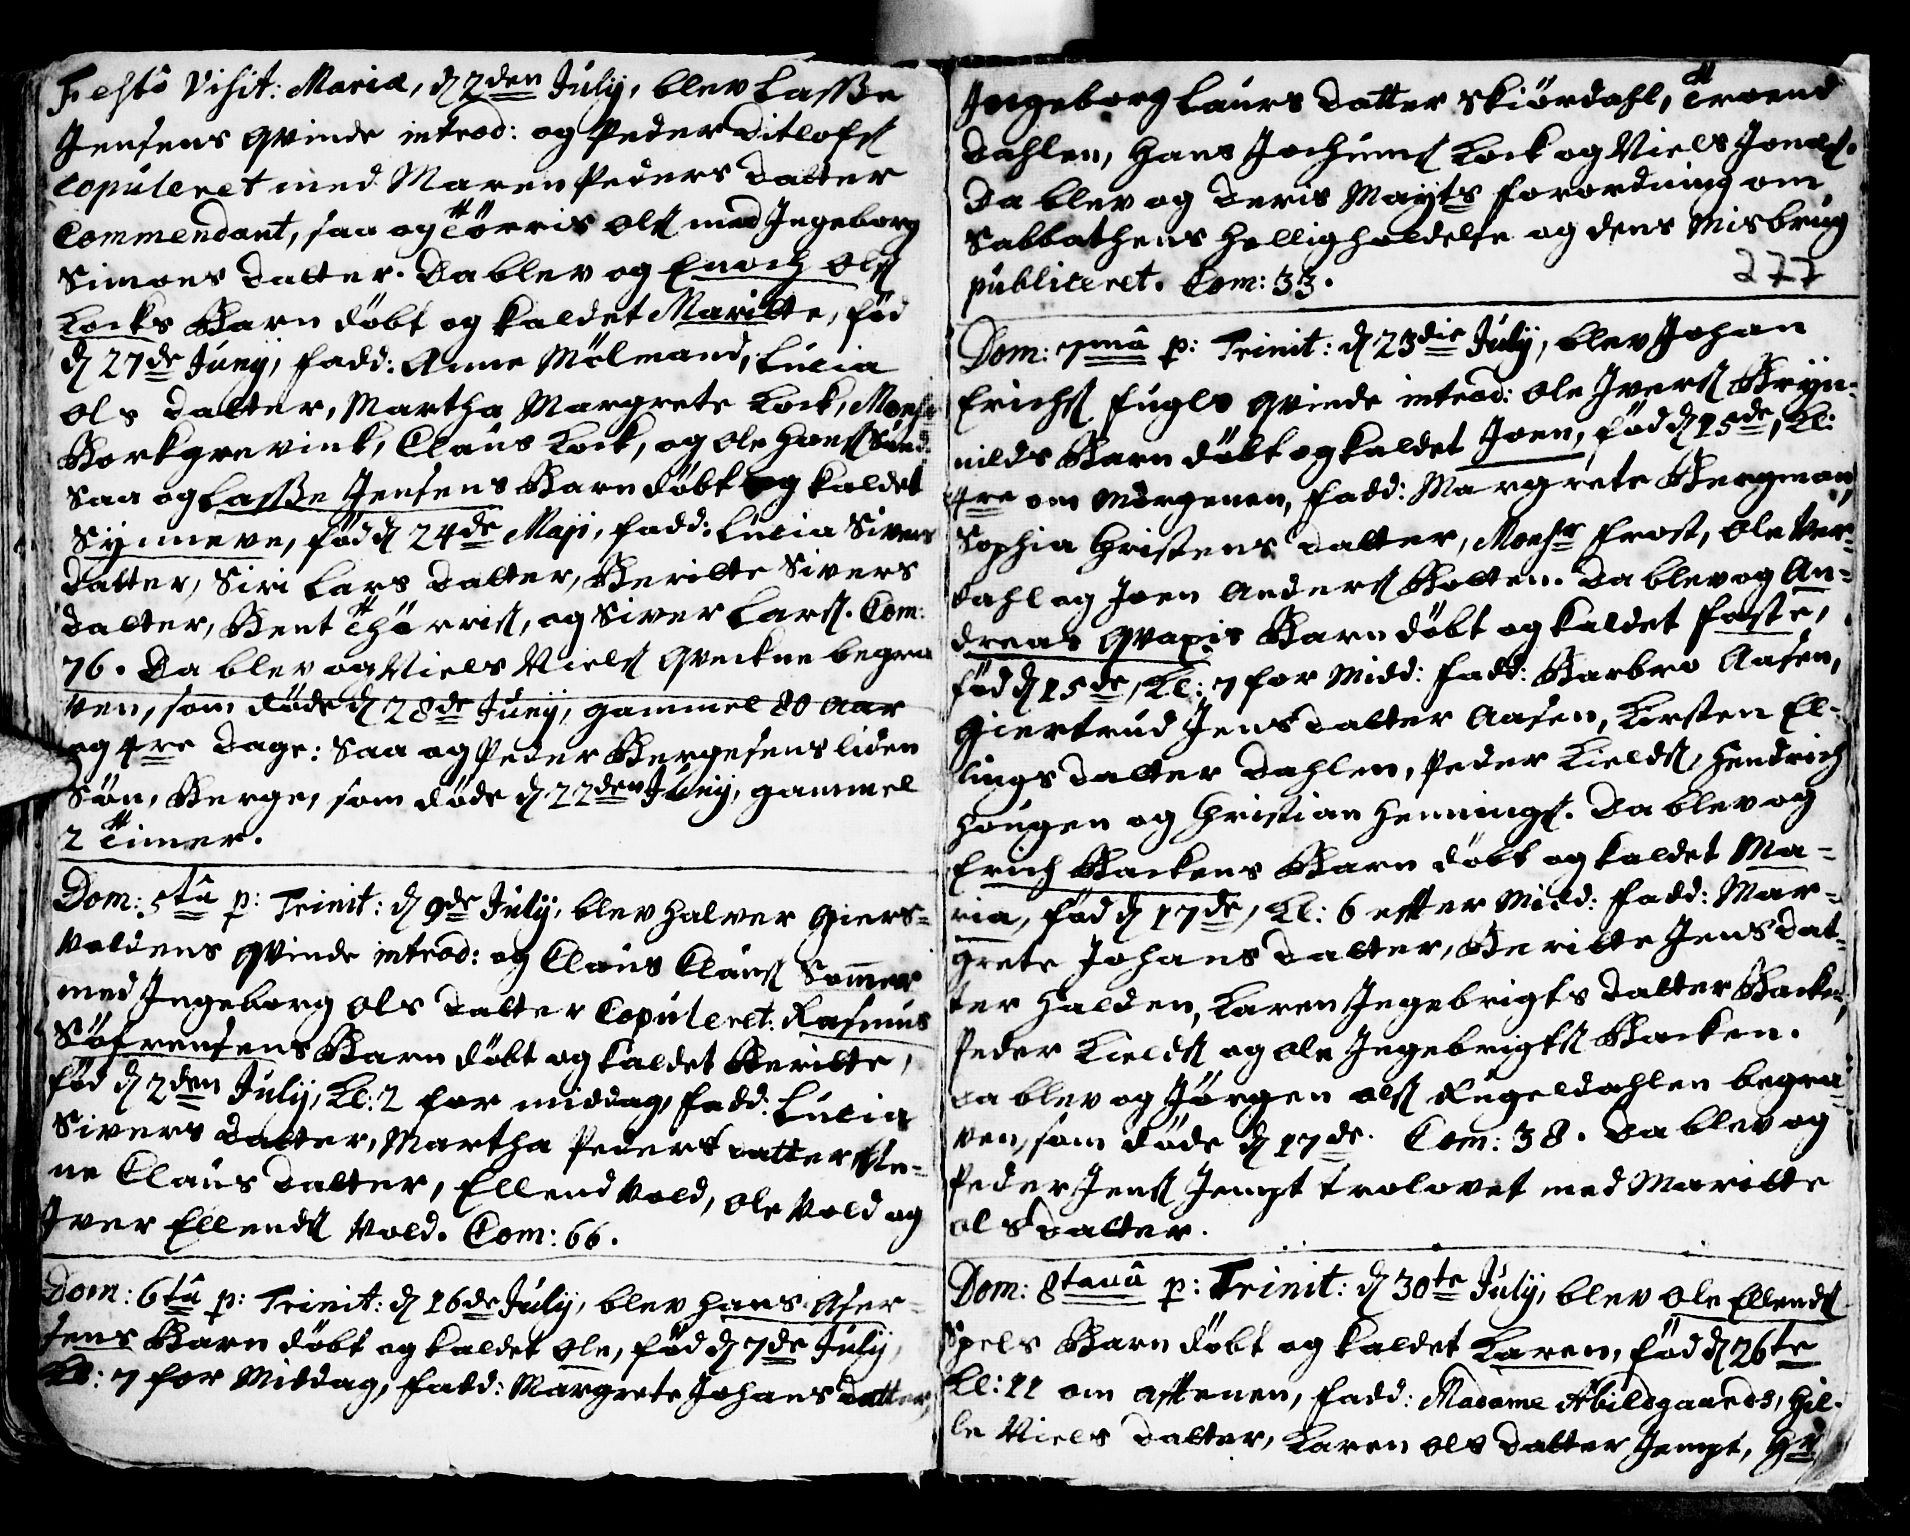 Festo Visit: Mariæ, d 2den Julij, blev Lasse
Jensens Qvinde introd: og Peder Ditlofs
Copuleret med Maren Peders datter
Commendant, saa og Törris Ols med Ingeborg
Simons datter. Da blev og Enoch Ols
Locks Barn döbt og kaldet Maritte, föd
d 27de Junij, fadd: Anne Mölmand, Lucia
Ols datter, Martha Margrete Lock, Monsr
Borkgrevink, Claus Lock, og Ole Hans Sund.
Saa og Lasse Jensens Barn döbt og kaldet
Synneve, föd d 24de Maji, fadd: Lucia Sivers
datter, Siri Lars datter, Beritte Sivers
datter, Bent Thörris, og Siver Lars. Com:
76. Da blev og Niels Niels Qveckne begra
ven, som döde d 28de Junij, gammel 80 Aar
og 4re Dage: Saa og Peder Bergesens liden
Sön, Berge, som döde d 22den Junij, gammel
2 Timer.
Dom: 5tâ p: Trinit: d 9de Julij, blev Halver Giers-
voldens Qvinde introd: og Claus Claus Sommer
med Ingeborg Ols datter Copuleret. Rasmus
Söfrensens Barn döbt og kaldet Beritte,
föd d 2den Julij, Kl: 2 for middag, fadd: Lucia
Sivers datter, Martha Peders datter, Ste-
ne Claus datter, Ellend Vold, Ole Vold og
Iver Ellends Vold. Com: 66.
Dom: 6tâ p: Trinit: d 16de Julij, blev Hans Aser-
sens Barn döbt og kaldet Ole, föd d 7de Julij,
Kl: 7 for Middag, fadd: Margrete Johans datter,
Ingeborg Laurs datter Skiördahl, Troend
Dahlen, Hans Jochums Lock og Niels Jonæs.
Da blev og Deris Mayts forordning om
Sabbathens Helligholdelse og dens Misbrug
publiceret. Com: 33.
277
Dom: 7mâ p: Trinit: d 23die Julij, blev Johan
Erichs Fugls Qvinde introd: Ole Ivers Bryn-
nilds Barn döbt og kaldet Joen, föd d 15de, Kl:
4re om Morgenen, fadd: Margrete Bergman,
Sophia Christens datter, Monsr Frost, Ole Ver-
dahl og Joen Anders Bolten. Da blev og An-
dreas Qvapis Barn döbt og kaldet Faste,
föd d 15de, Kl: 7 for Midd: fadd: Barbro Aasen,
Giertrud Jens datter Aasen, Kirsten El-
lings datter Dahlen, Peder Kields, Hendrich
Hougen og Christian Hennings. Da blev og
Erich Backens Barn döbt og kaldet Ma-
ria, föd d 17de, Kl: 6 efter Midd: fadd: Mar-
grete Johans datter, Beritte Jens dat-
ter Halden, Karen Ingebrigts datter Backen,
Peder Kields og Ole Ingebrigts Backen.
Da blev og Jörgen Ols Rugeldahlen begra-
ven, som döde d 17de. Com: 38. Da blev og
Peder Jens Jempt trolovet med Maritte
Ols datter.
Dom: 8tavâ p: Trinit: d 30te Julij, blev Ole Ellends
Spels Barn döbt og kaldet Karen, föd d 26te
Kl: 11 om Aftenen, fadd: Madame Abildgaards, Hil-
le Niels datter, Karen Ols datter Jempt, Hr